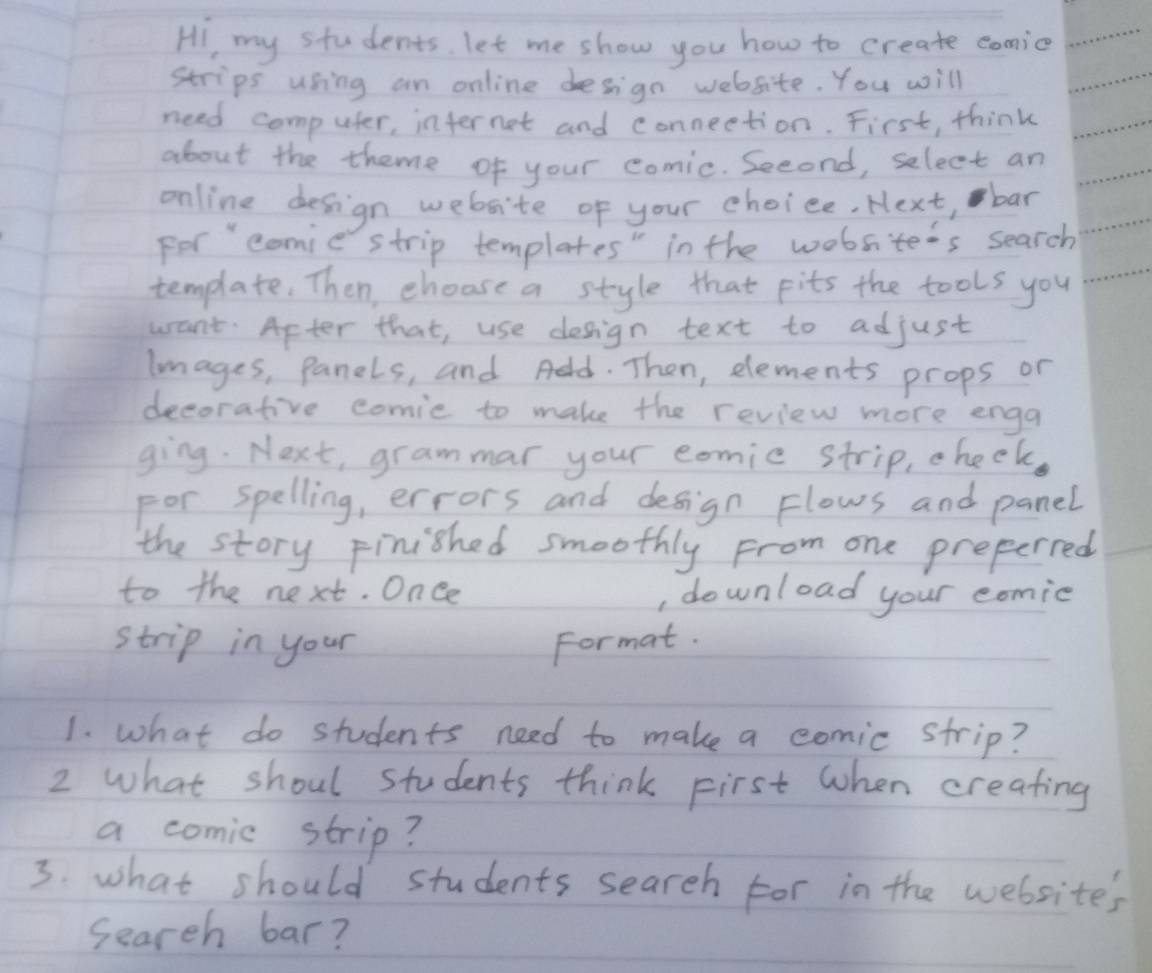 Hi, my students. let me show you how to create comic
strips using an online design website. You will
need computer, internet and connection. First, think
about the theme of your comic. Second, select an
online design website of your choice. Next, bar
for "comic strip templates" in the website's search
template. Then, choose a style that fits the tools you
want. After that, use design text to adjust
Images, Panels, and Add. Then, elements props or
decorative comic to make the review more enga
ging. Next, grammar your comic strip, check
for spelling, errors and design flows and panel
the story finished smoothly from one preferred
to the next. Once , download your comic
strip in your format.
1. what do students need to make a comic strip?
2 what shoul students think first when creating
a comic strip?
3. what should students search for in the website's
search bar?